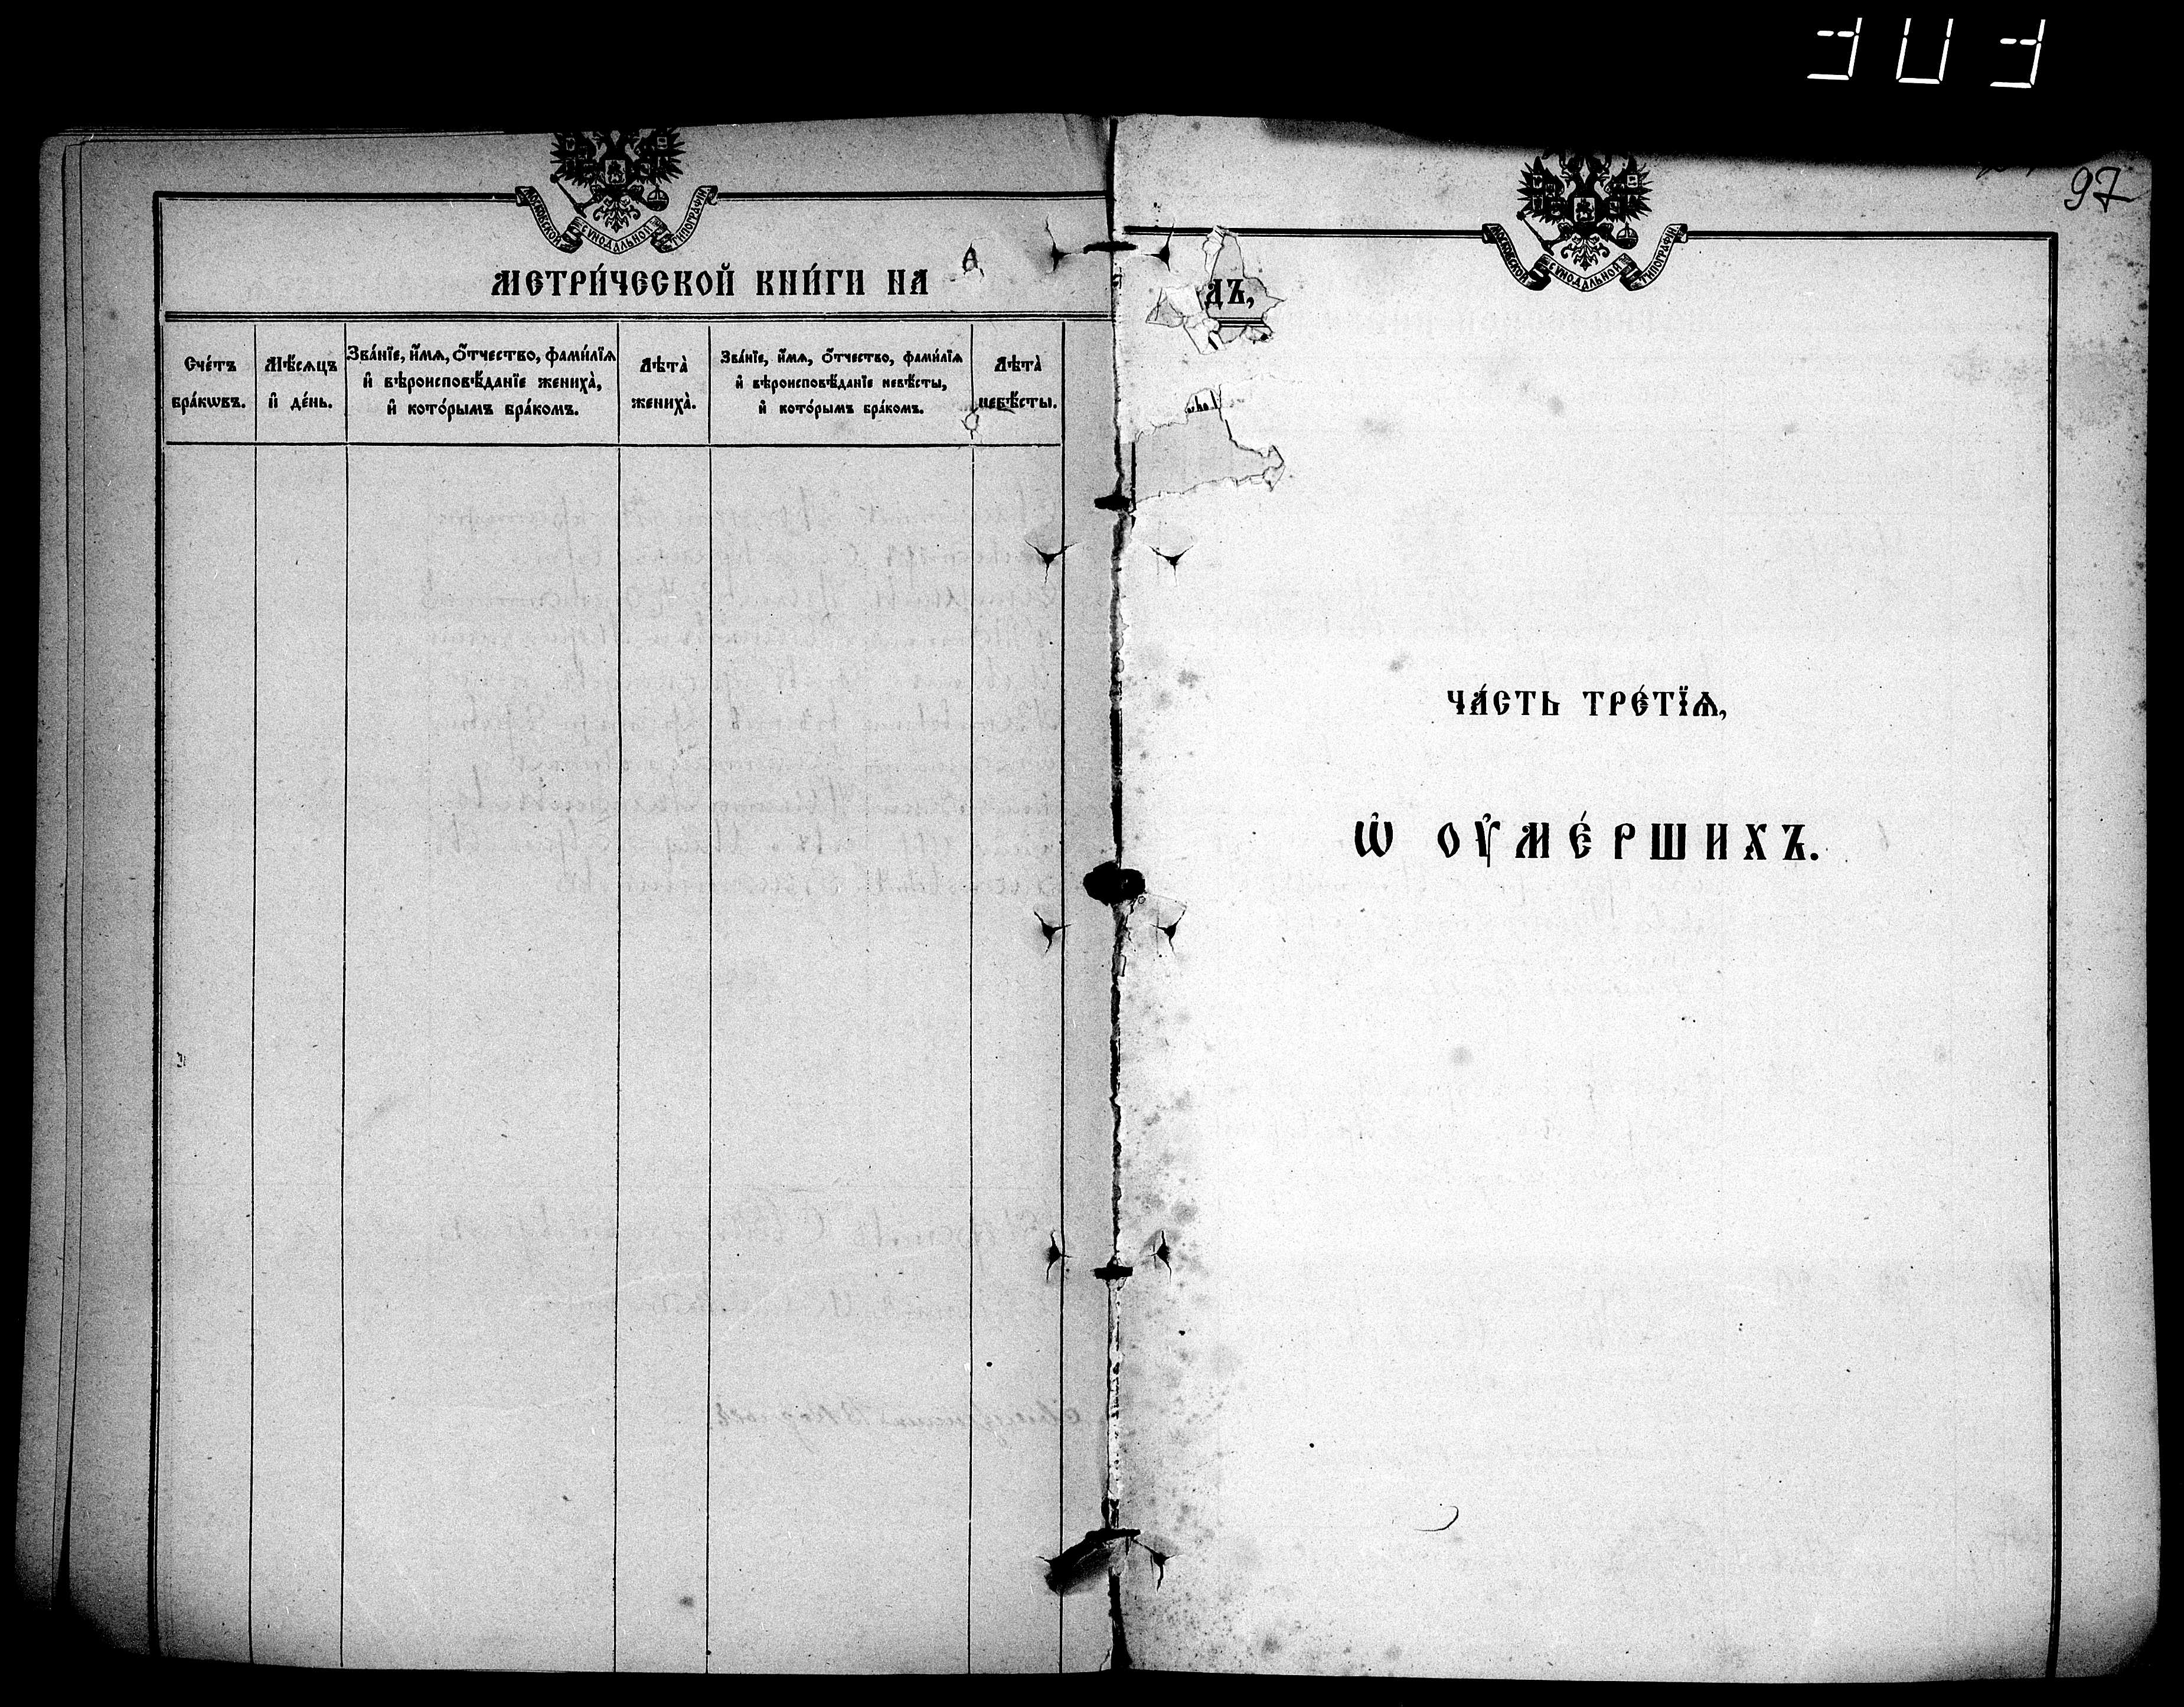 303
97
МОСКОВСКОЙ СѴНОДАЛЬНОЙ ТИПОГРАФІИ
МЕТРИ́ЧЕСКОЙ КНИ́ГИ НА
Сче́тъ
бра́кѡвъ.
Мѣ́сѧцъ
и҆ де́нь.
Зва́нїе, и҆́мѧ, ѻ҆́тчество, фами́лїѧ
и҆ вѣроисповѣ́данїе жениха̀,
и҆ кото́рымъ бра́комъ.
Лѣта̀
жениха̀.
Зва́нїе, и҆́мѧ, ѻ҆́тчество, фами́лїѧ
и҆ вѣроисповѣ́данїе невѣ́сты,
и҆ кото́рымъ бра́комъ.
Лѣта̀
невѣ́сты.
МОСКОВСКОЙ СѴНОДАЛЬНОЙ ТИПОГРАФІИ
ДЪ,
ЧА́СТЬ ТРЕ́ТЇѦ,
Ѡ҆ ОУ҆МЕ́РШИХЪ.